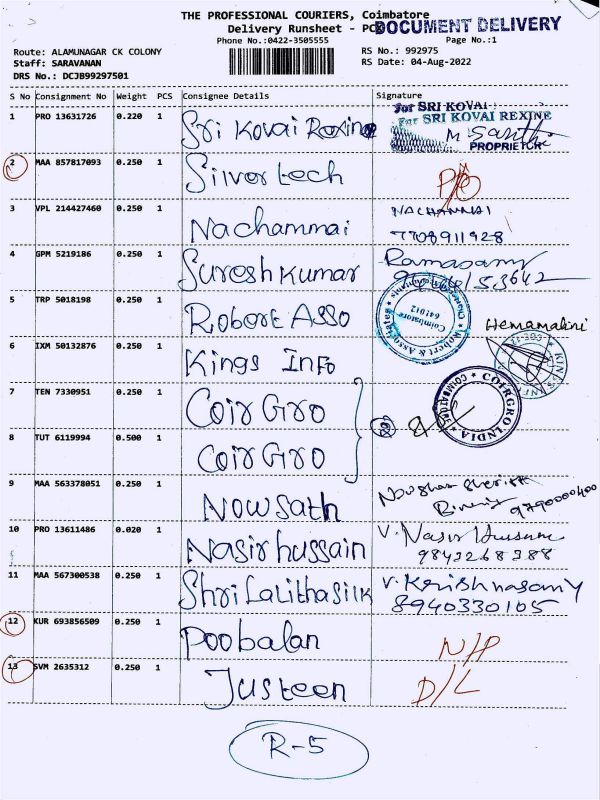 THE PROFESSIONAL COURIERS, Coimbatore
Delivery Runsheet - PCD
DOCUMENT DELIVERY
Phone No.:0422-3505555 Page No.:1
Route: ALAMUNAGAR CK COLONY RS No.: 992975
Staff: SARAVANAN RS Date: 04-Aug-2022
DRS No.: DCJB99297501
S No Consignment No Weight PCS Consignee Details Signature
1 PRO 13631726 0.220 1 Sri Kovai Rexine
for SRI KOVAI
For SRI KOVAI REXINE
M Santhi
PROPRIETOR
2 MAA 857817093 0.250 1 Silver tech
3 VPL 214427460 0.250 1 Nachammai NACHAMMAI
7708911928
4 GPM 5219186 0.250 1 Suresh Kumar Ramasamy
5 TRP 5018198 0.250 1 Robert Asso
Robert & Associates Coimbatore 641012
6 IXM 50132876 0.250 1 Kings Info Hemamalini
7 TEN 7330951 0.250 1 Coir Gro
COIRGRO INDIA
8 TUT 6119994 0.500 1 Coir Gro
9 MAA 563378051 0.250 1 Nowsath
9790000400
10 PRO 13611486 0.020 1 Nasir hussain V. Nasir Hussain
9843268388
11 MAA 567300538 0.250 1 Shri Lalitha silk V. Krishnasamy
8940330105
12 KUR 693856509 0.250 1 Poobalan N/P
13 SVM 2635312 0.250 1 Justeen D/L
R-5